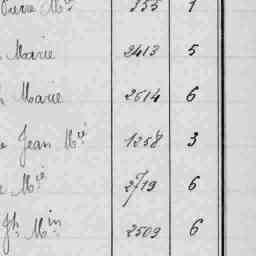 Pierre Mie 355 1
Marie 2413 5
h Marie 2614 6
e Jean Mié 1258 3
e Mie 2719 6
Jh Min 2509 6